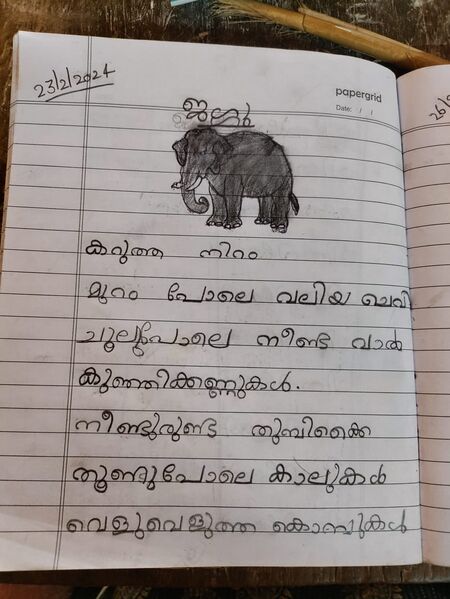 23/2/2024
papergrid
Date: / /
കറുത്ത നിറം
മുറം പോലെ വലിയ ചെവി
ചൂലുപോലെ നീണ്ട വാൽ
കുഞ്ഞിക്കണ്ണുകൾ.
നീണ്ടുരുണ്ട തുമ്പിക്കൈ
തൂണുപോലെ കാലുകൾ
വെളുവെളുത്ത കൊമ്പുകൾ